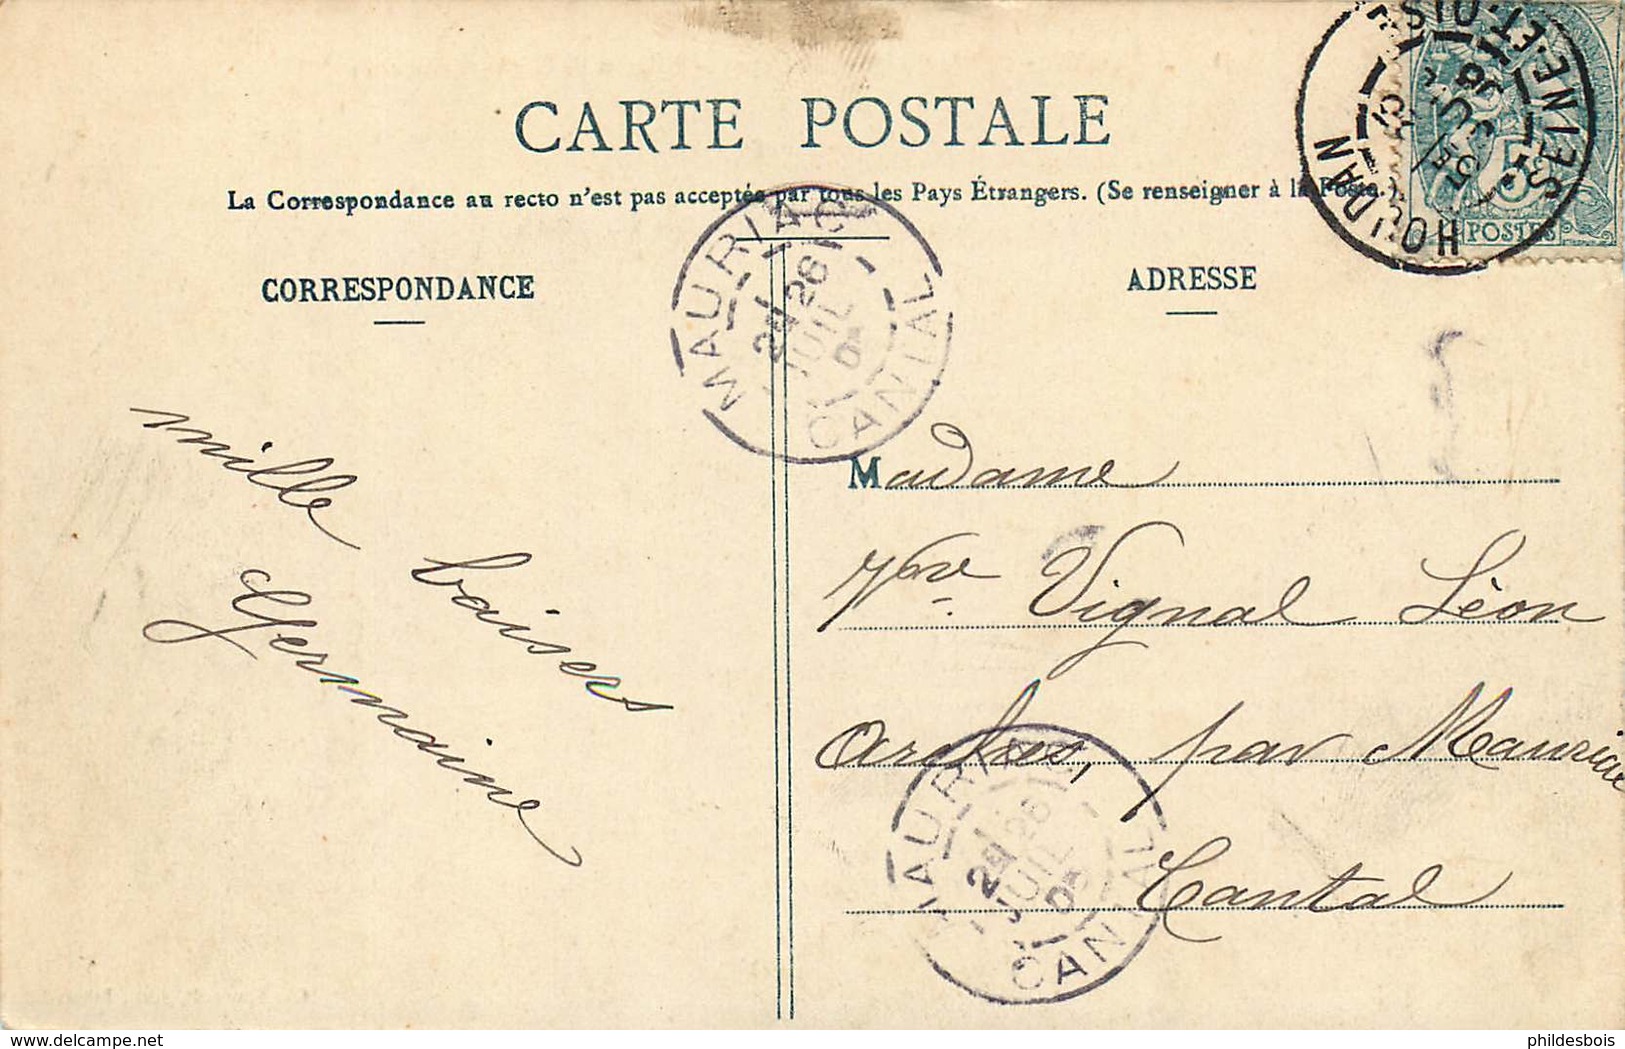 CARTE POSTALE
La Correspondance au recto n'est pas acceptée par tous les Pays Étrangers. (Se renseigner à la Poste.)
CORRESPONDANCE
ADRESSE
mille baisers
Germaine
Madame
Vve Vignal Léon
Arches, par Mauriac
Cantal
MAURIAC
2E 26
JUIL
05
CANTAL
MAURIAC
2E 26
JUIL
05
CANTAL
HOUDAN
SEINE-ET-OISE
5
POSTES
www.delcampe.net
phildesbois